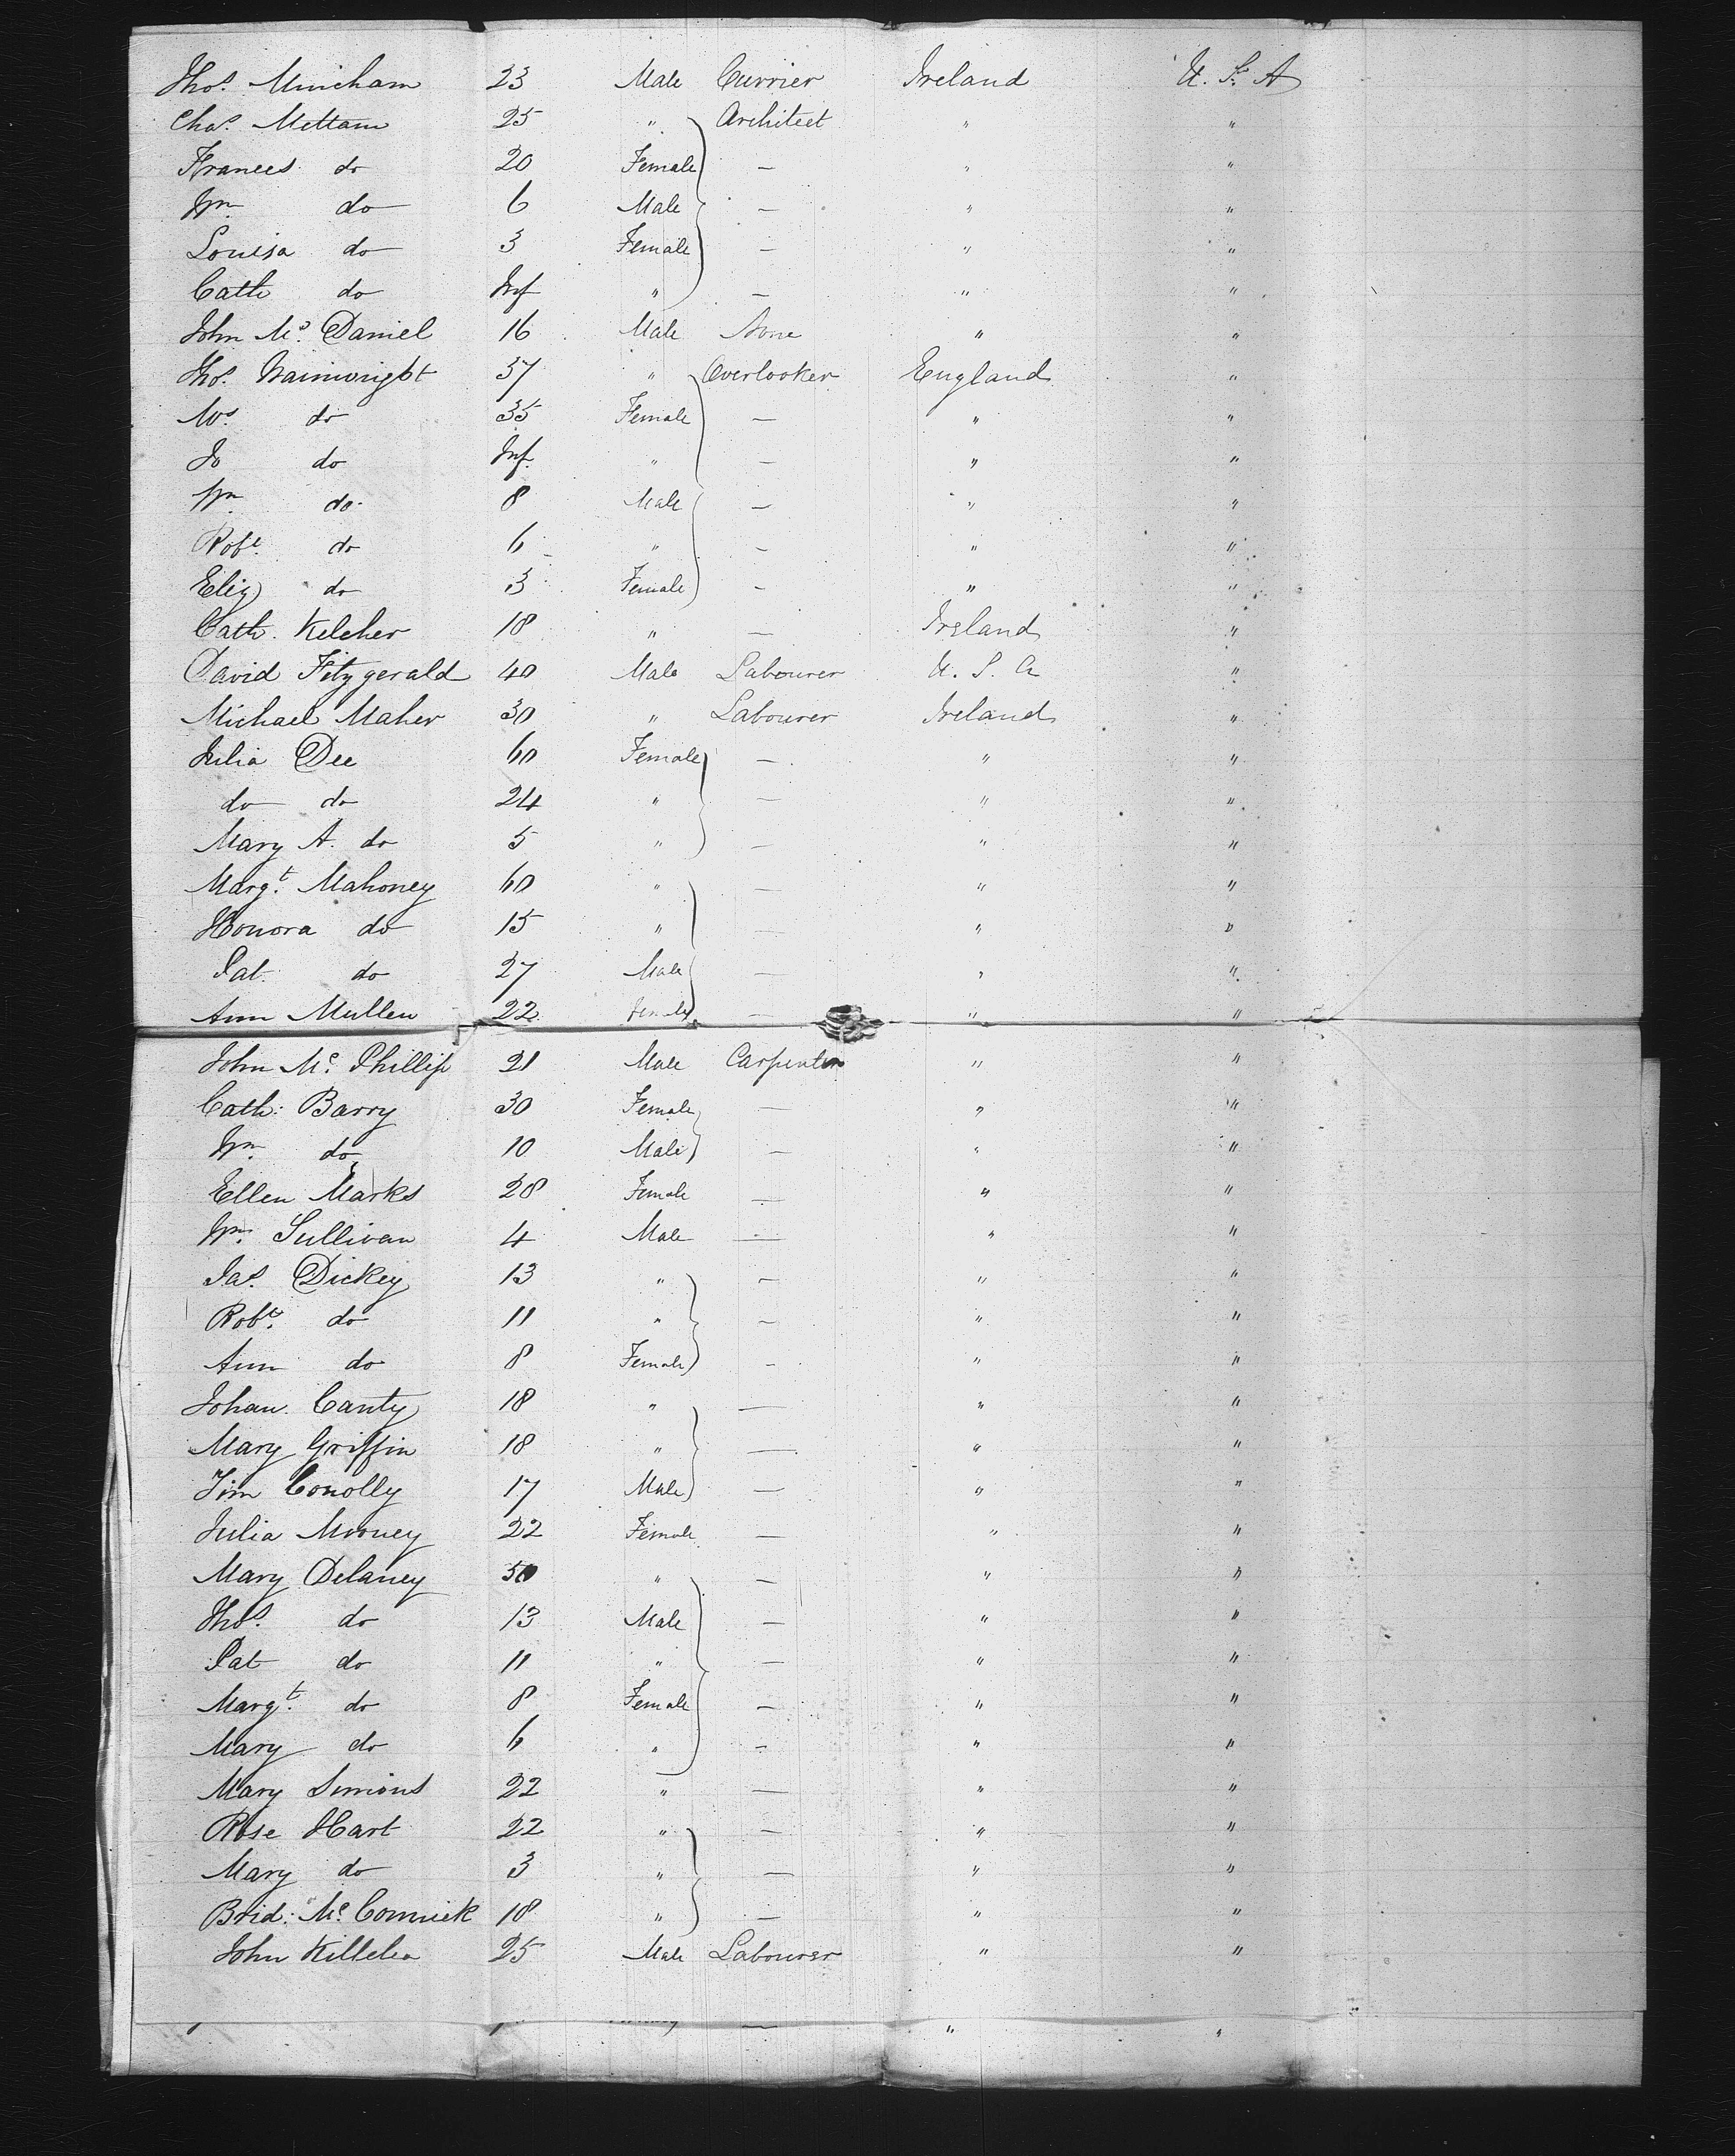 Thos. Minicham 23 Male Currier Ireland U. S. A
Chas. Mettam 25 " Architect " "
Frances do 20 Female — " "
Wm. do 6 Male — " "
Louisa do 3 Female — " "
Cath do Inf " — " "
John Mc. Daniel 16 Male None " "
Thos. Wainwright 37 " Overlooker England "
Mrs. do 35 Female — " "
Jo do Inf. " — " "
Wm do 8 Male — " "
Robt. do 6 " — " "
Eliz do 3 Female — " "
Cath. Kelcher 18 " — Ireland "
David Fitzgerald 40 Male Labourer U. S. A "
Michael Maher 30 " Labourer Ireland "
Julia Dee 60 Female — " "
do do 24 " — " "
Mary A. do 5 " — " "
Margt. Mahoney 60 " — " "
Honora do 15 " — " "
Pat do 27 Male — " "
Ann Mullen 22 Female — " "
John Mc. Phillip 21 Male Carpenter " "
Cath: Barry 30 Female — " "
Wm. do 10 Male — " "
Ellen Marks 28 Female — " "
Wm. Sullivan 4 Male — " "
Jas. Dickey 13 " — " "
Robt. do 11 " — " "
Ann do 8 Female — " "
Johan. Canty 18 " — " "
Mary Griffin 18 " — " "
Tim Conolly 17 Male — " "
Julia Mooney 22 Female — " "
Mary Delaney 30 " — " "
Thos. do 13 Male — " "
Pat do 11 " — " "
Margt. do 8 Female — " "
Mary do 6 " — " "
Mary Simons 22 " — " "
Rose Hart 22 " — " "
Mary do 3 " — " "
Brid: Mc. Connick 18 " — " "
John Killelea 25 Male Labourer " "
— " "